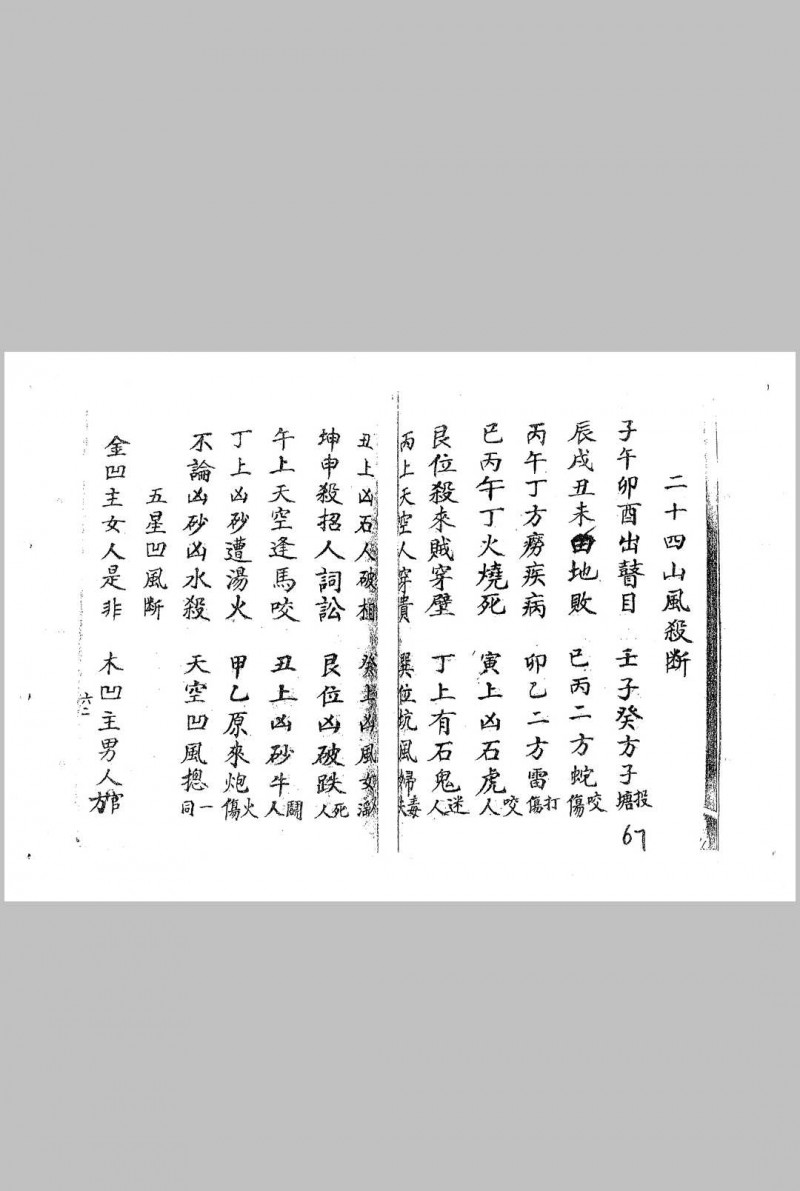 二十四山風殺断
子午卯酉出瞽目 壬子癸方子投塘
辰戌丑未田地敗 巳丙二方蛇咬傷
丙午丁方癆疾病 卯乙二方雷打傷
巳丙午丁火燒死 寅上凶石虎咬人
艮位殺來賊穿壁 丁上有石鬼迷人
丙上天空人穿貴 巽位坑風婦毒夫
丑上凶石人破相 癸上凶風女
坤申殺招人詞訟 艮位凶破跌死人
午上天空逢馬咬 丑上凶砂牛鬪人
丁上凶砂遭湯火 甲乙原來炮火傷
不論凶砂凶水殺 天空凹風摠一同
五星凹風断
金凹主女人是非 木凹主男人官方
六二
67